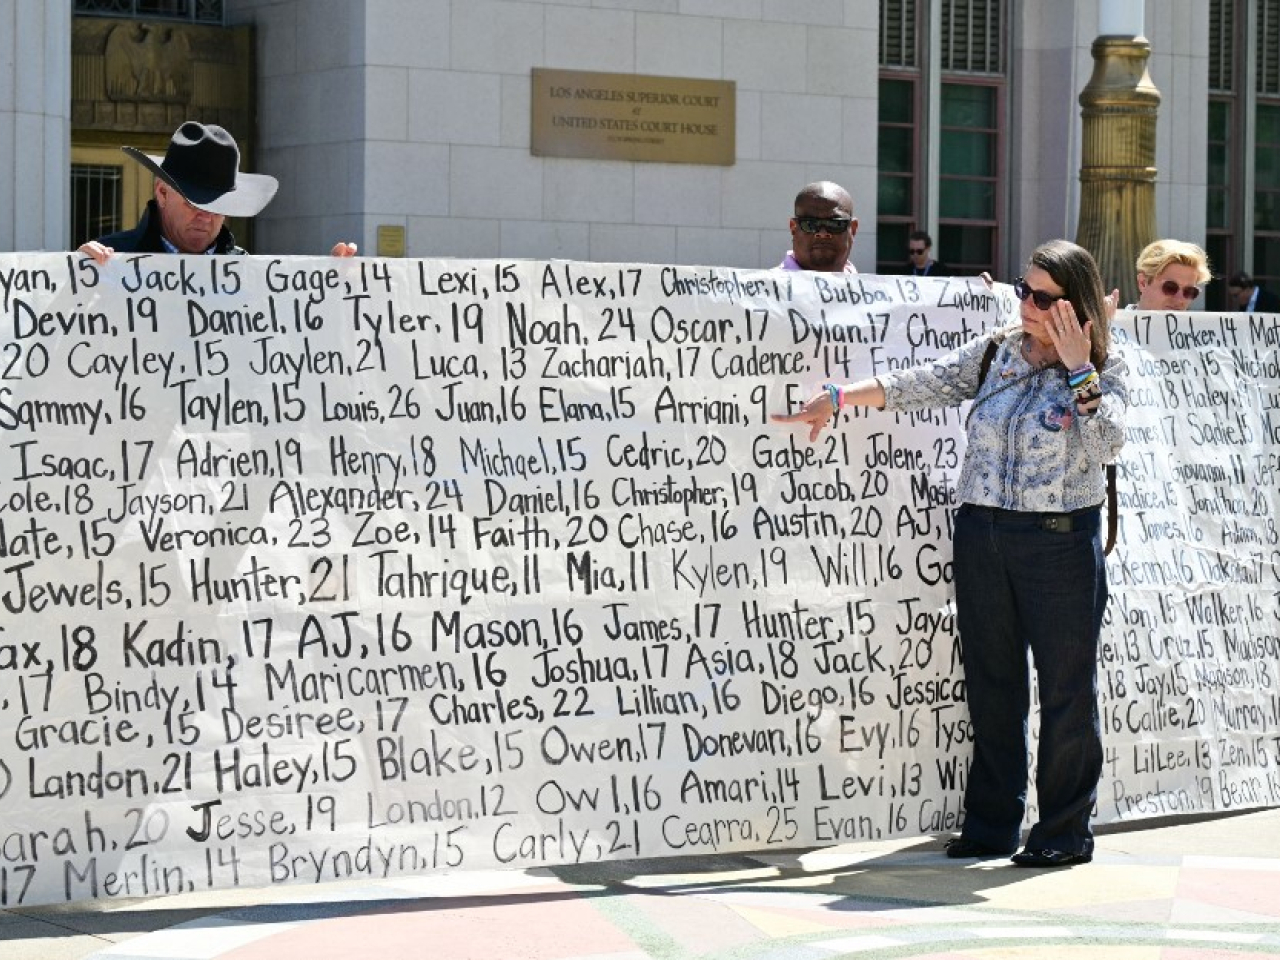 LOS ANGELES SUPERIOR COURT
AT
UNITED STATES COURT HOUSE
yan, 15 Jack, 15 Gage, 14 Lexi, 15 Alex, 17 Christopher, 17 Bubba, 13 Zachary
Devin, 19 Daniel, 16 Tyler, 19 Noah, 24 Oscar, 17 Dylan, 17 Chantel 17 Parker, 14 Mat
20 Cayley, 15 Jaylen, 21 Luca, 13 Zachariah, 17 Cadence, 14 Jasper, 15 Nichol
Sammy, 16 Taylen, 15 Louis, 26 Juan, 16 Elana, 15 Arriani, 9 Mia, 18 Haley, 17
Isaac, 17 Adrien, 19 Henry, 18 Michael, 15 Cedric, 20 Gabe, 21 Jolene, 23 17 Sadie, 15
ole, 18 Jayson, 21 Alexander, 24 Daniel, 16 Christopher, 19 Jacob, 20 17 Giovanni, 11 Jeff
Nate, 15 Veronica, 23 Zoe, 14 Faith, 20 Chase, 16 Austin, 20 AJ, Jonathan, 20
Jewels, 15 Hunter, 21 Tahrique, 11 Mia, 11 Kylen, 19 Will, 16 Ga James, 16 Adam, 18
ax, 18 Kadin, 17 AJ, 16 Mason, 16 James, 17 Hunter, 15 Jayd cKenna, 16 Dakota, 17
, 17 Bindy, 14 Maricarmen, 16 Joshua, 17 Asia, 18 Jack, 20 Von, 15 Walker, 16
Gracie, 15 Desiree, 17 Charles, 22 Lillian, 16 Diego, 16 Jessica ei, 13 Cruz, 15 Madison
Landon, 21 Haley, 15 Blake, 15 Owen, 17 Donevan, 16 Evy, 16 Tyso , 18 Jay, 15 Madison, 18
arah, 20 Jesse, 19 London, 12 Owl, 16 Amari, 14 Levi, 13 Wil 16 Callie, 20 Murray, 18
17 Merlin, 14 Bryndyn, 15 Carly, 21 Cearra, 25 Evan, 16 Caleb 4 LilLee, 13 Zen, 15 J
Preston, 19 Bear, 16